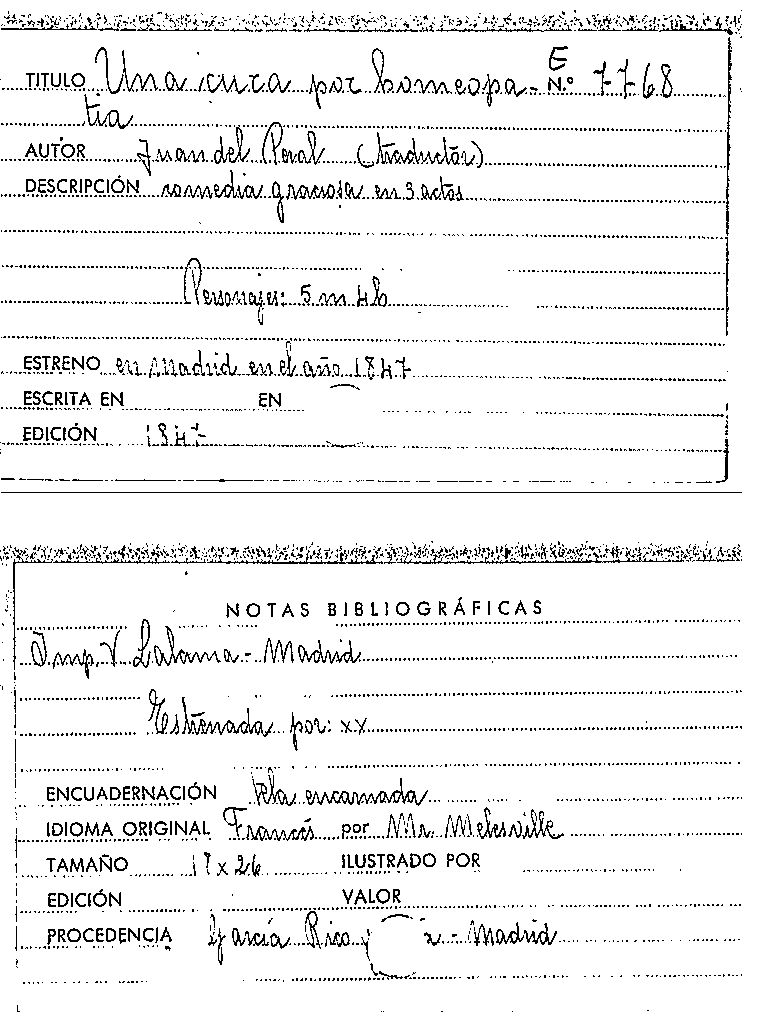 TITULO Una cura por homeopa- E N.º 7-7-68
tia
AUTOR Juan del Peral (traductor)
DESCRIPCIÓN comedia graciosa en 3 actos
Personajes: 5 m 4 h
ESTRENO en Madrid en el año 1847
ESCRITA EN EN
EDICIÓN 1847
NOTAS BIBLIOGRÁFICAS
Imp. V. Lalama - Madrid
Estrenada por: xx
ENCUADERNACIÓN tela encarnada
IDIOMA ORIGINAL Francés por Mr. Melesville
TAMAÑO 17 x 26 ILUSTRADO POR
EDICIÓN VALOR
PROCEDENCIA García Rico y - Madrid